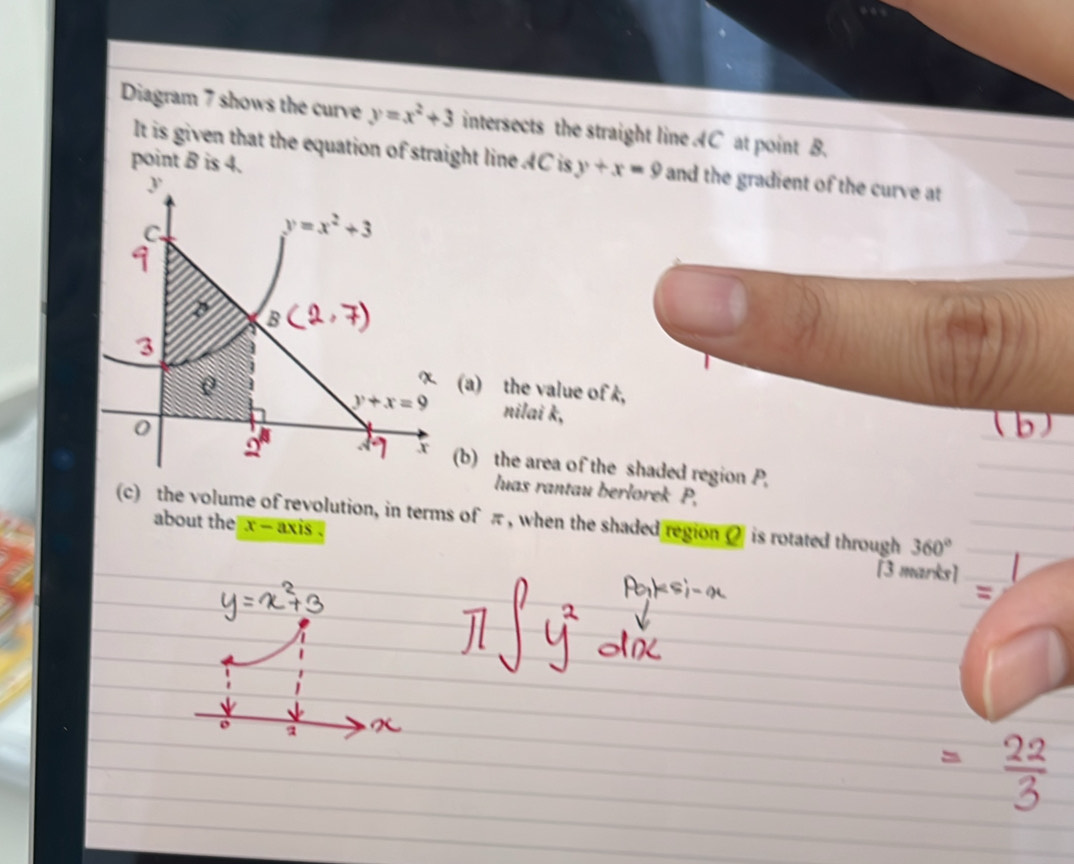 Diagram 7 shows the curve y = x² + 3 intersects the straight line AC at point B.
It is given that the equation of straight line AC is y + x = 9 and the gradient of the curve at
point B is 4.
y
C
9
y = x² + 3
P
B (2, 7)
3
Q
y + x = 9
x
O
2
A 9
x
(a) the value of k,
nilai k,
(b) the area of the shaded region P,
luas rantau berlorek P,
(b)
(c) the volume of revolution, in terms of π, when the shaded region Q is rotated through 360°
about the x – axis .
[3 marks]
y = x² + 3
π ∫ y² dx
Paksi-x
0
2
x
=
= 22/3